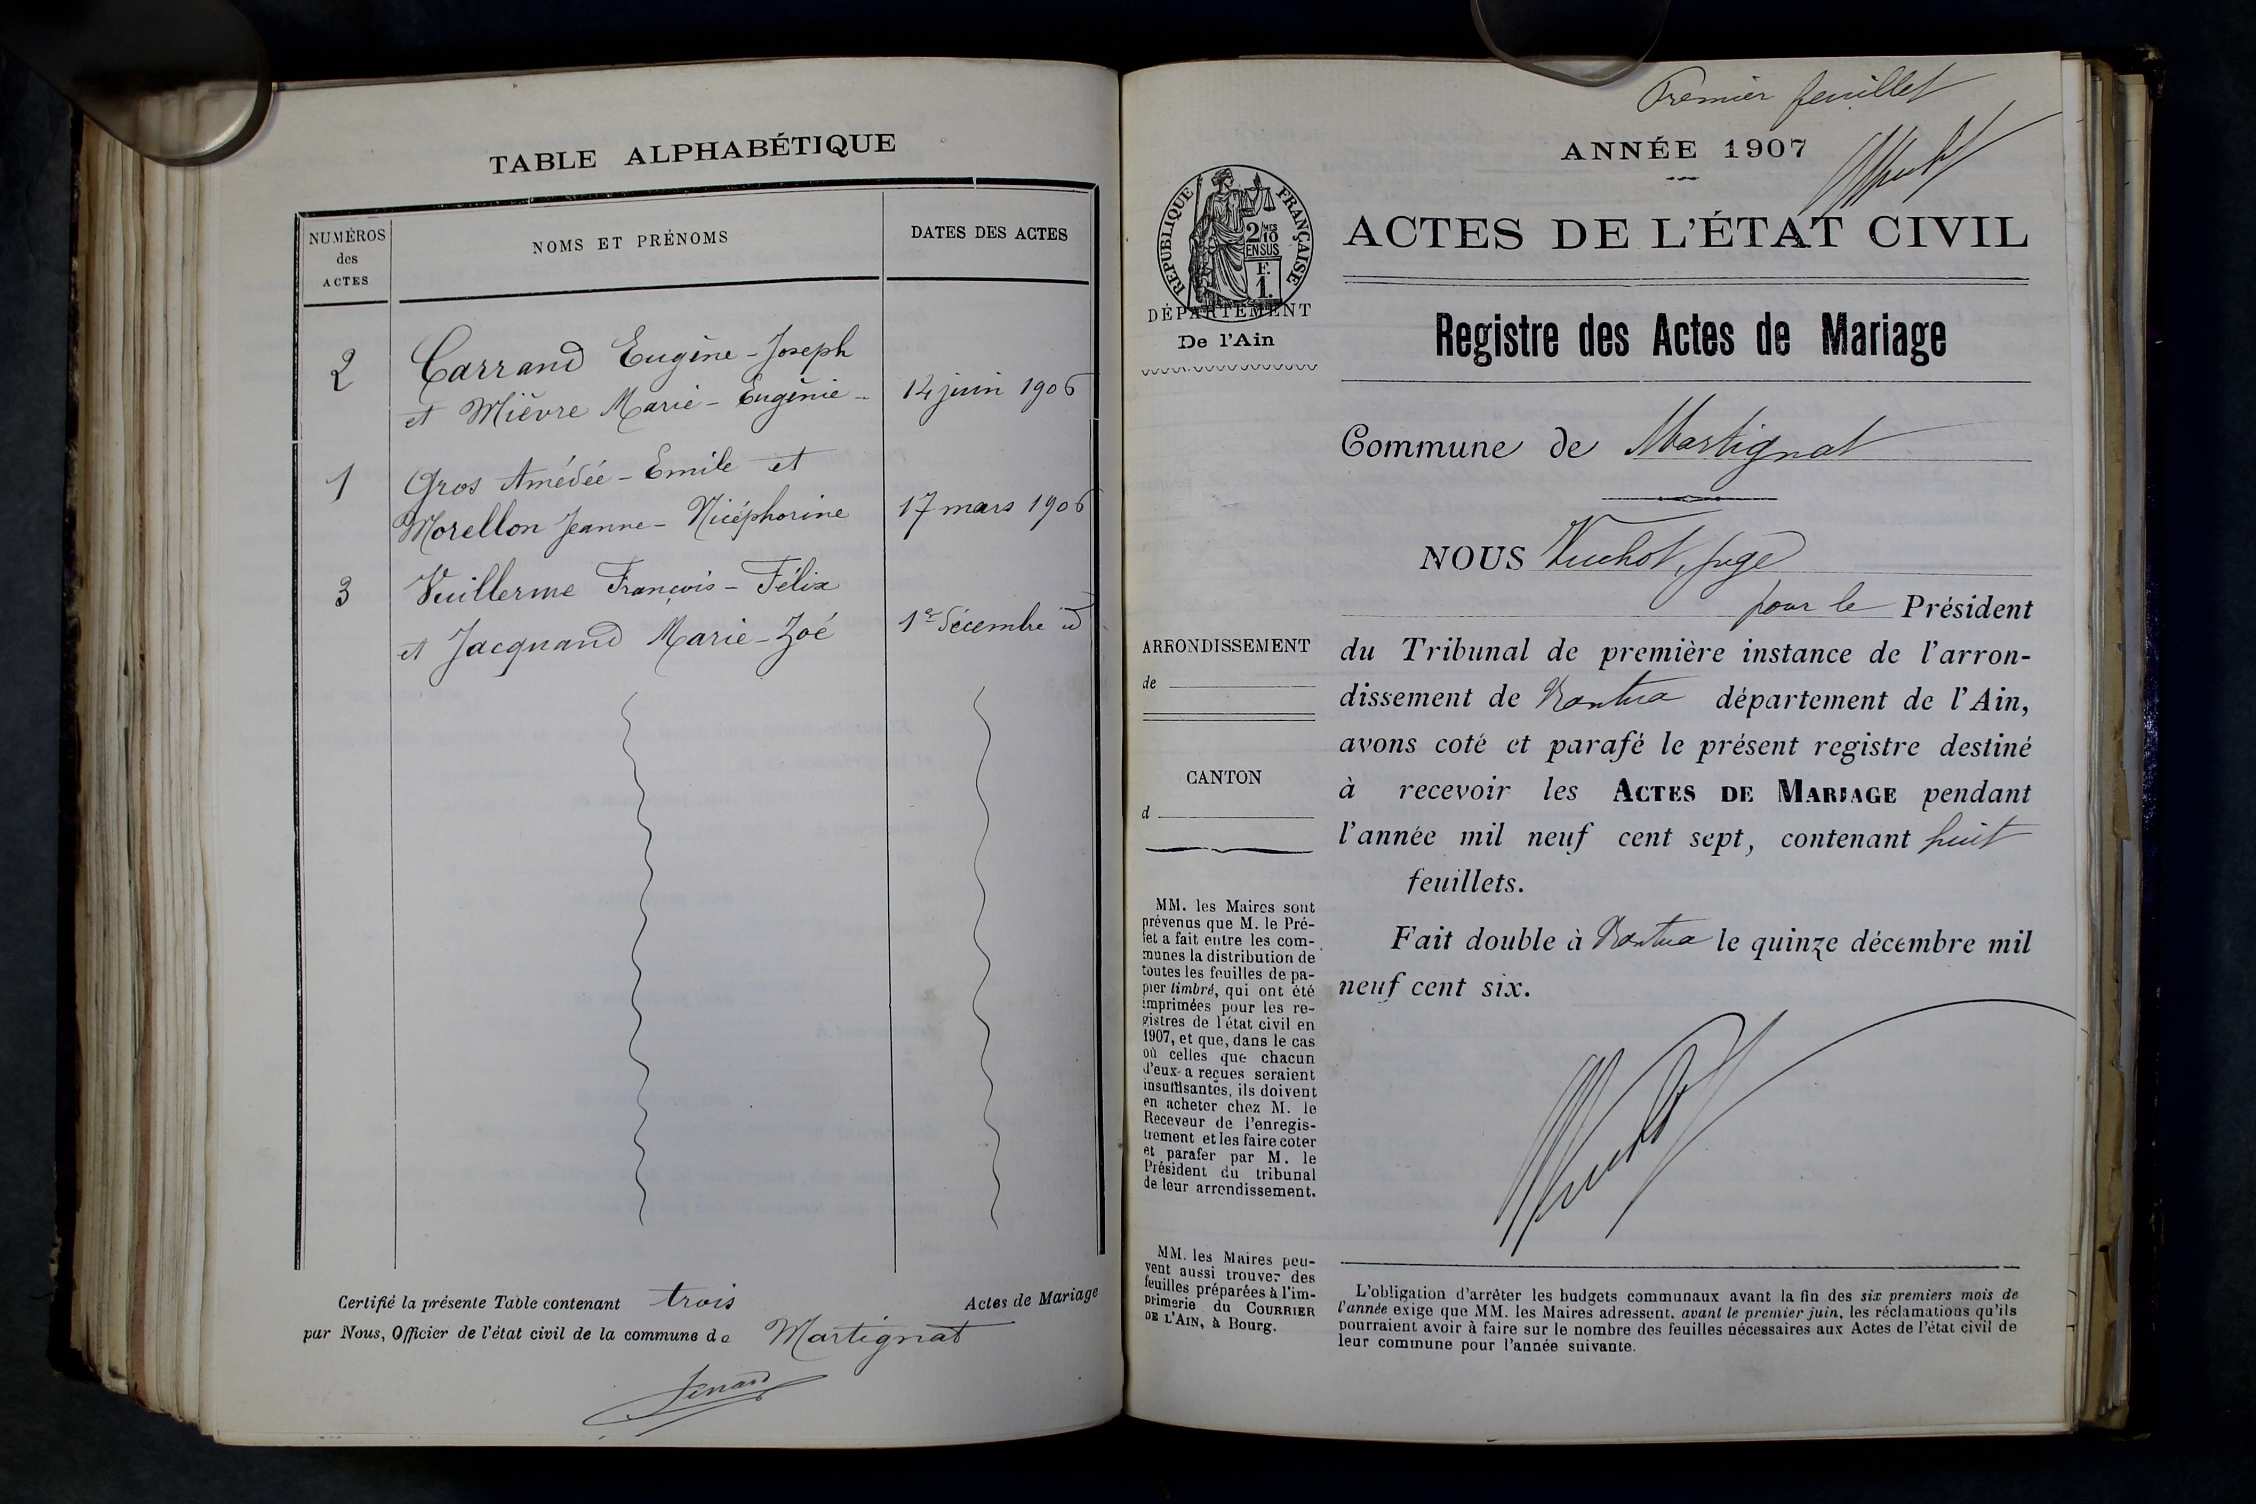 TABLE ALPHABÉTIQUE
NUMÉROS
des
ACTES
NOMS ET PRÉNOMS
DATES DES ACTES
2
Carrand Eugène-Joseph
et Mièvre Marie-Eugénie
14 juin 1906
1
Gros Amédée-Emile et
Morellon Jeanne-Nicéphorine
17 mars 1906
3
Vuillerme François-Félix
et Jacquand Marie-Zoé
1er décembre id
Certifié la présente Table contenant trois Actes de Mariage
par Nous, Officier de l'état civil de la commune de Martignat
Premier feuillet
ANNÉE 1907
RÉPUBLIQUE FRANÇAISE
2/10 MES
EN SUS
F.
1.
DÉPARTEMENT
De l'Ain
ACTES DE L'ÉTAT CIVIL
Registre des Actes de Mariage
Commune de Martignat
NOUS Vuchot, juge
pour le Président
du Tribunal de première instance de l'arron-
dissement de Nantua département de l'Ain,
avons coté et parafé le présent registre destiné
à recevoir les ACTES DE MARIAGE pendant
l'année mil neuf cent sept, contenant huit
feuillets.
Fait double à Nantua le quinze décembre mil
neuf cent six.
ARRONDISSEMENT
de
CANTON
d
MM. les Maires sont
prévenus que M. le Pré-
fet a fait entre les com-
munes la distribution de
toutes les feuilles de pa-
pier timbré, qui ont été
imprimées pour les re-
gistres de l'état civil en
1907, et que, dans le cas
où celles que chacun
d'eux a reçues seraient
insuffisantes, ils doivent
en acheter chez M. le
Receveur de l'enregis-
trement et les faire coter
et parafer par M. le
Président du tribunal
de leur arrondissement.
MM. les Maires peu-
vent aussi trouver des
feuilles préparées à l'im-
primerie du COURRIER
DE L'AIN, à Bourg.
L'obligation d'arrêter les budgets communaux avant la fin des six premiers mois de
l'année exige que MM. les Maires adressent, avant le premier juin, les réclamations qu'ils
pourraient avoir à faire sur le nombre des feuilles nécessaires aux Actes de l'état civil de
leur commune pour l'année suivante.